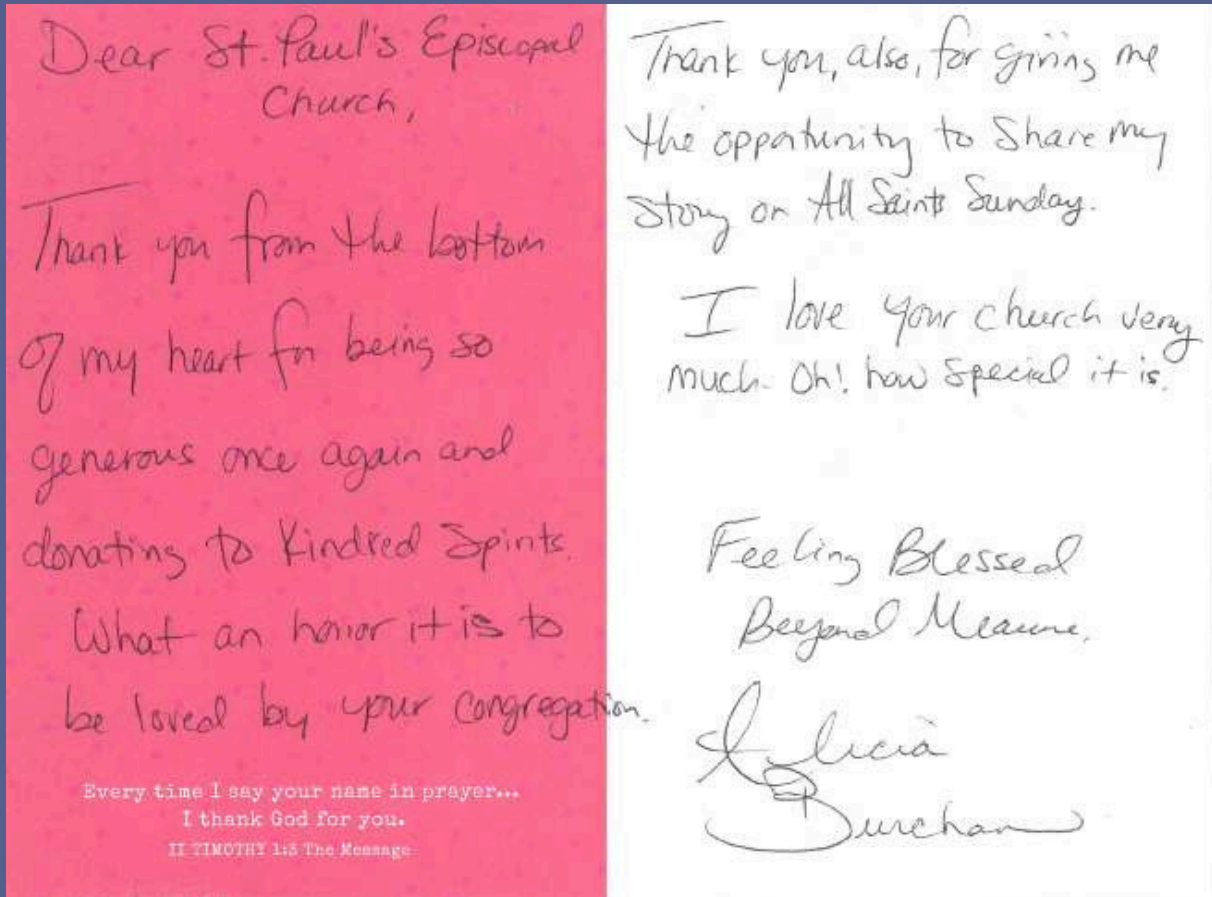 Dear St. Paul's Episcopal
Church,
Thank you from the bottom
of my heart for being so
generous once again and
donating to Kindred Spirits.
What an honor it is to
be loved by your congregation.
Every time I say your name in prayer...
I thank God for you.
II TIMOTHY 1:3 The Message
Thank you, also, for giving me
the opportunity to Share my
Story on All Saints Sunday.
I love your church very
much. Oh! how Special it is.
Feeling Blessed
Beyond Measure,